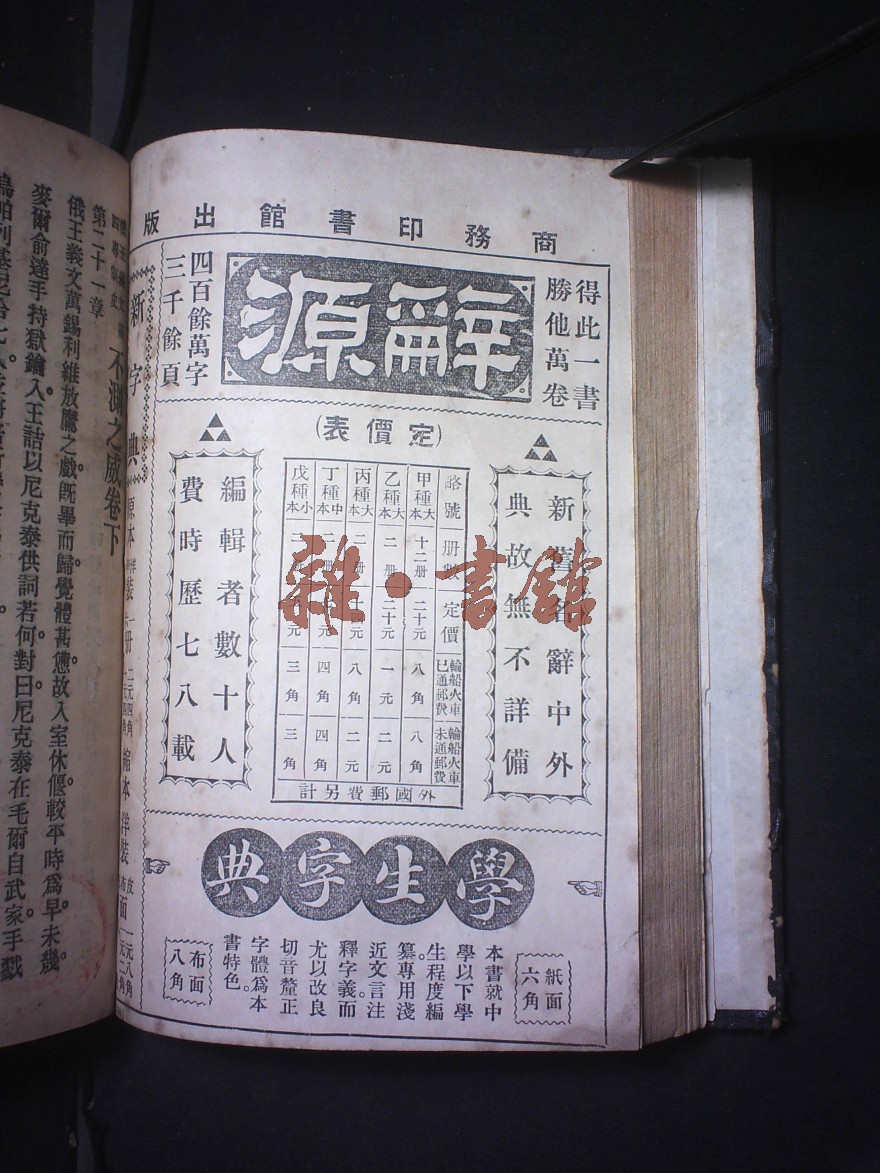 商務印書館出版
得此一書
勝他萬卷
辭源
四百餘萬字
三千餘頁
新舊名辭中外
典故無不詳備
(定價表)
略號 册數 定價 輪船火車已通郵費 輪船火車未通郵費
甲種大本 十二册 二十元 八角 八角
乙種大本 二册 二十元 一元 二元
丙種大本 二册 十四元 八角 二元
丁種中本 二册 元 四角 四角
戊種小本 二 元 三角 三角
外國郵費另計
編輯者數十人
費時歷七八載
學生字典
紙面
六角
本書就中
學以下學
生程度編
纂專用淺
近文言注
釋字義而
尤以改良
切音釐正
字體爲本
書特色。
布面
八角
新字典
原本
裝
册
縮本洋裝
不測之威卷下
第二十一章
俄王義文萬錫利維放鷹之戲既畢而歸。覺體甚憊。故入室休偃。較平時爲早。未幾。
麥爾俞達手持獄鑰入。王詰以尼克泰供詞若何。對曰。尼克泰在毛爾自武家手戮
雜·書館